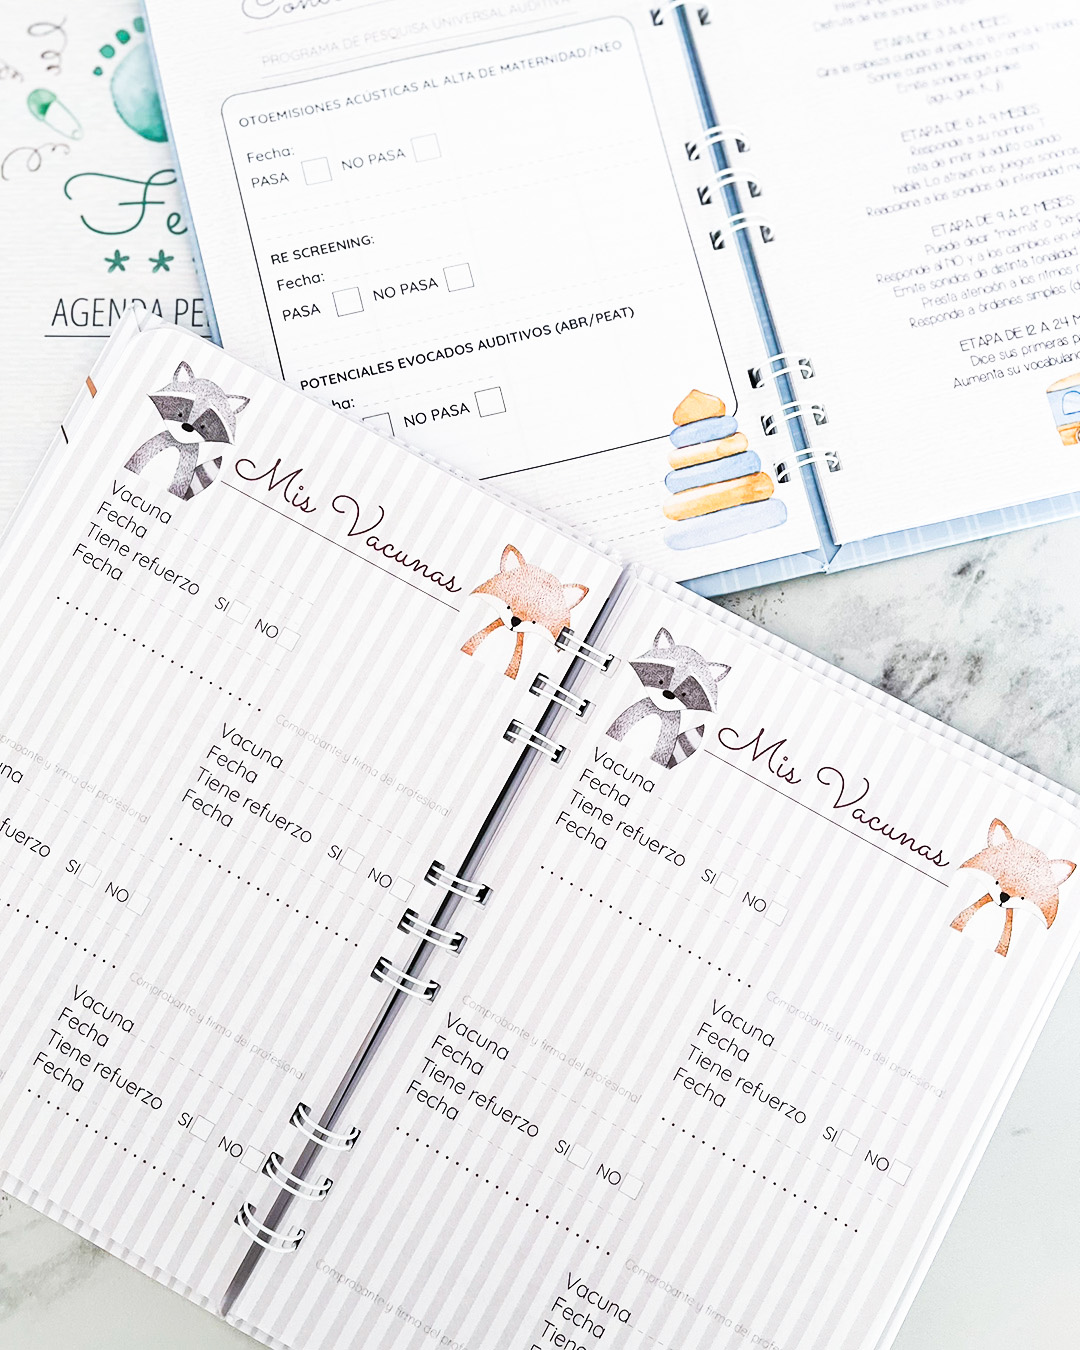 PROGRAMA DE PESQUISA UNIVERSAL AUDITIVA
OTOEMISIONES ACÚSTICAS AL ALTA DE MATERNIDAD/NEO
Fecha:
PASA NO PASA
RE SCREENING:
Fecha:
PASA NO PASA
POTENCIALES EVOCADOS AUDITIVOS (ABR/PEAT)
NO PASA
ETAPA DE 3 A 6 MESES:
ETAPA DE 6 A 9 MESES
Responde a su nombre
trata de imitar al adulto cuando
habla. Lo atraen los juegos sonoros
Reacciona a los sonidos de intensidad
ETAPA DE 9 A 12 MESES
Puede decir "ma-má" o
Responde al NO y a los cambios en
Emite sonidos de distinta tonalidad
Presta atención a los ritmos
Responde a órdenes simples
ETAPA DE 12 A 24
Dice sus primeras
Aumenta su
AGENDA
Mis Vacunas
Vacuna
Fecha
Tiene refuerzo
Fecha
SI NO
Comprobante y firma del profesional
Vacuna
Fecha
Tiene refuerzo
Fecha
SI NO
firma del profesional
SI NO
Comprobante y firma del profesional
Vacuna
Fecha
Tiene refuerzo
Fecha
SI NO
Mis Vacunas
Vacuna
Fecha
Tiene refuerzo
Fecha
SI NO
Comprobante y firma del profesional
Vacuna
Fecha
Tiene refuerzo
Fecha
SI NO
Comprobante y firma del profesional
Vacuna
Fecha
Tiene refuerzo
Fecha
SI NO
Comprobante y firma del profesional
Comprobante y firma del
Vacuna
Fecha
Tiene